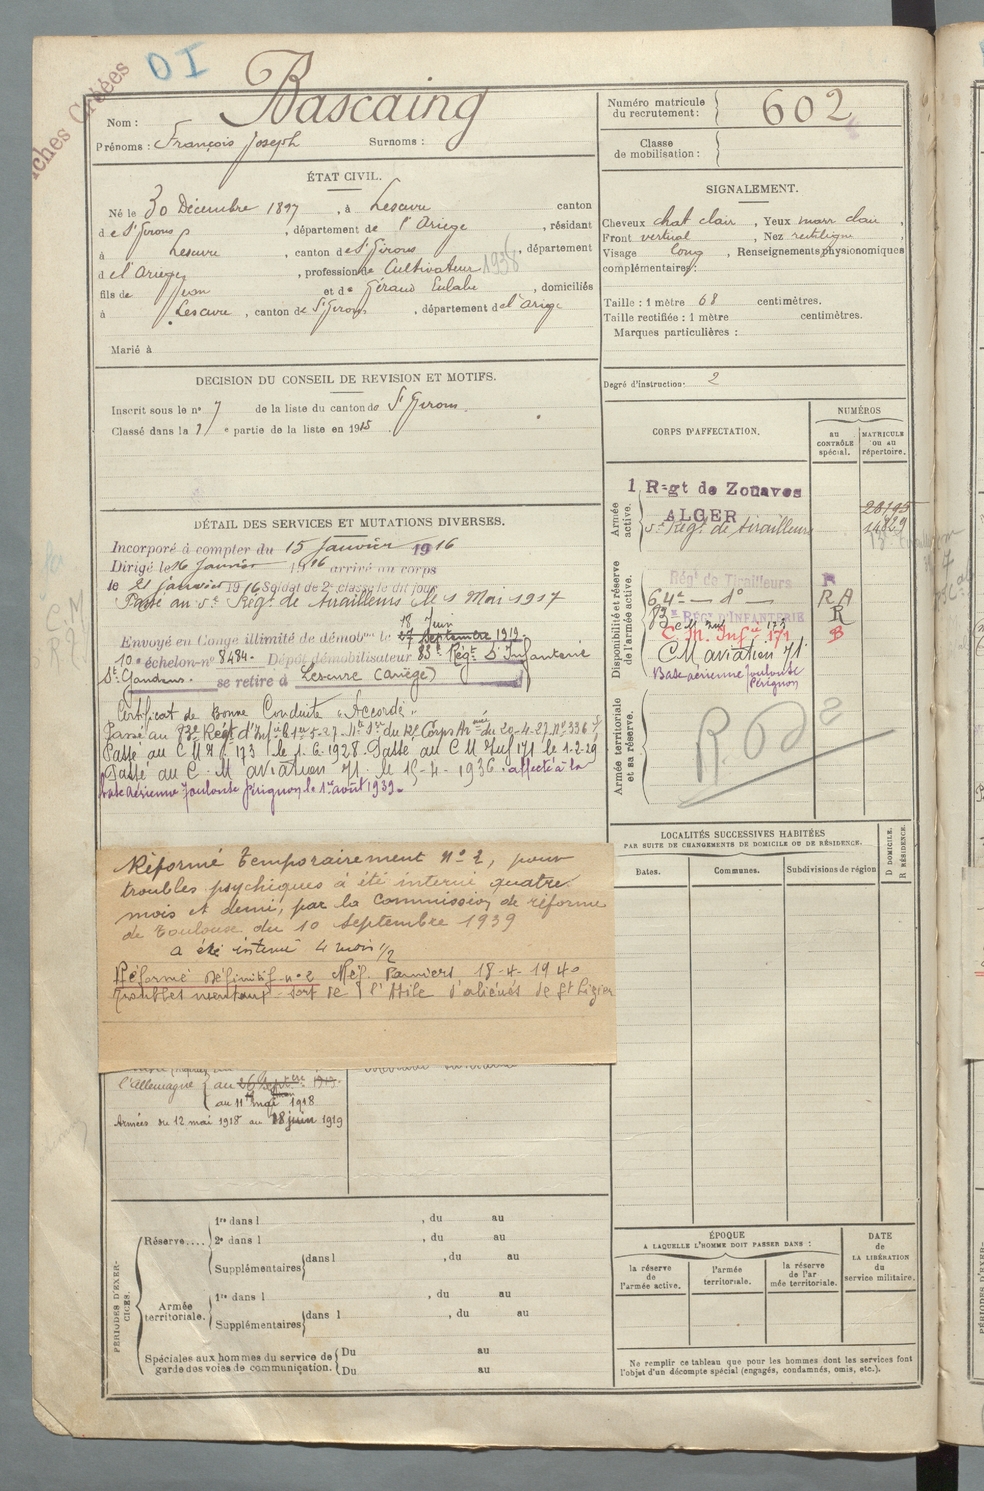 Fiches Créées
DI
Nom : Bascaing
Prénoms : François Joseph Surnoms :
Numéro matricule du recrutement : 602
Classe de mobilisation :
ÉTAT CIVIL.
Né le 30 Décembre 1897, à Lescure canton
de St Girons, département de l'Ariège, résidant
à Lescure, canton de St Girons, département
de l'Ariège, profession de Cultivateur 1938
fils de Jean et de Géraud Eulalie, domiciliés
à Lescure, canton de St Girons, département de l'Ariège
Marié à
SIGNALEMENT.
Cheveux chat clair, Yeux marr clair,
Front vertical, Nez rectiligne,
Visage long, Renseignements physionomiques
complémentaires :
Taille : 1 mètre 68 centimètres.
Taille rectifiée : 1 mètre centimètres.
Marques particulières :
Degré d'instruction. 2
DECISION DU CONSEIL DE REVISION ET MOTIFS.
Inscrit sous le n° 7 de la liste du canton de St Girons.
Classé dans la 1 e partie de la liste en 1915
DÉTAIL DES SERVICES ET MUTATIONS DIVERSES.
Incorporé à compter du 15 Janvier 1916
Dirigé le 16 Janvier 1916 arrivé au corps
le 21 janvier 1916 Soldat de 2e classe le dit jour
Passé au 5e Régt de tirailleurs le 1 Mai 1917
18 Juin
Envoyé en Congé illimité de démobon le 17 Septembre 1919
10e échelon n° 8484. Dépôt démobilisateur 83e Régt D'Infanterie
St Gaudens. se retire à Lescure (Ariège)
Certificat de Bonne Conduite "Accordé"
Passé au 83e Régt d'Infie le 1er 5-27. du 17e Corps du 20-4-27. N° 336
Passé au C M I 173 le 1.6.1928. Passé au C M Inf 171 le 1-2-29
Passé au C. M aviation 71. le 15-4-1936. affecté à la
base aérienne Toulouse Pérignon le 1er août 1939.
Réformé temporairement N° 2, pour
troubles psychiques à été interné quatre
mois et demi, par la Commission de réforme
de Toulouse du 10 septembre 1939
a été interné 4 mois 1/2
Réformé Définitif n° 2 Pamiers 18-4-1940
Troubles mentaux sort de l'Asile d'aliénés de St Lizier
l'Allemagne au 26 Septbre 1919
au 11 mai 1918
Armées du 12 mai 1918 au 18 juin 1919
CORPS D'AFFECTATION.
NUMÉROS
au CONTRÔLE spécial.
MATRICULE ou au répertoire.
Armée active.
1 R=gt de Zouaves
ALGER
5e Régt de tirailleurs
20195
14829
Disponibilité et réserve de l'armée active.
Régt de Tirailleurs R
64e — do — R A
83e RÉGt D'INFANTERIE R
C M Inf 173
C. M. Infie 171 B
CM aviation 71
Base aérienne Toulouse
Pérignon
Armée territoriale et sa réserve.
R. D 2
LOCALITÉS SUCCESSIVES HABITÉES
PAR SUITE DE CHANGEMENTS DE DOMICILE OU DE RÉSIDENCE.
Dates. Communes. Subdivisions de région
D DOMICILE.
R RÉSIDENCE.
PÉRIODES D'EXERCICES.
Réserve....
1re dans l , du au
2e dans l , du au
Supplémentaires dans l , du au
Armée territoriale.
1re dans l , du au
Supplémentaires dans l , du au
Spéciales aux hommes du service de garde des voies de communication.
Du au
Du au
ÉPOQUE
A LAQUELLE L'HOMME DOIT PASSER DANS :
la réserve de l'armée active.
l'armée territoriale.
la réserve de l'armée territoriale.
DATE de LA LIBÉRATION du service militaire.
Ne remplir ce tableau que pour les hommes dont les services font
l'objet d'un décompte spécial (engagés, condamnés, omis, etc.).